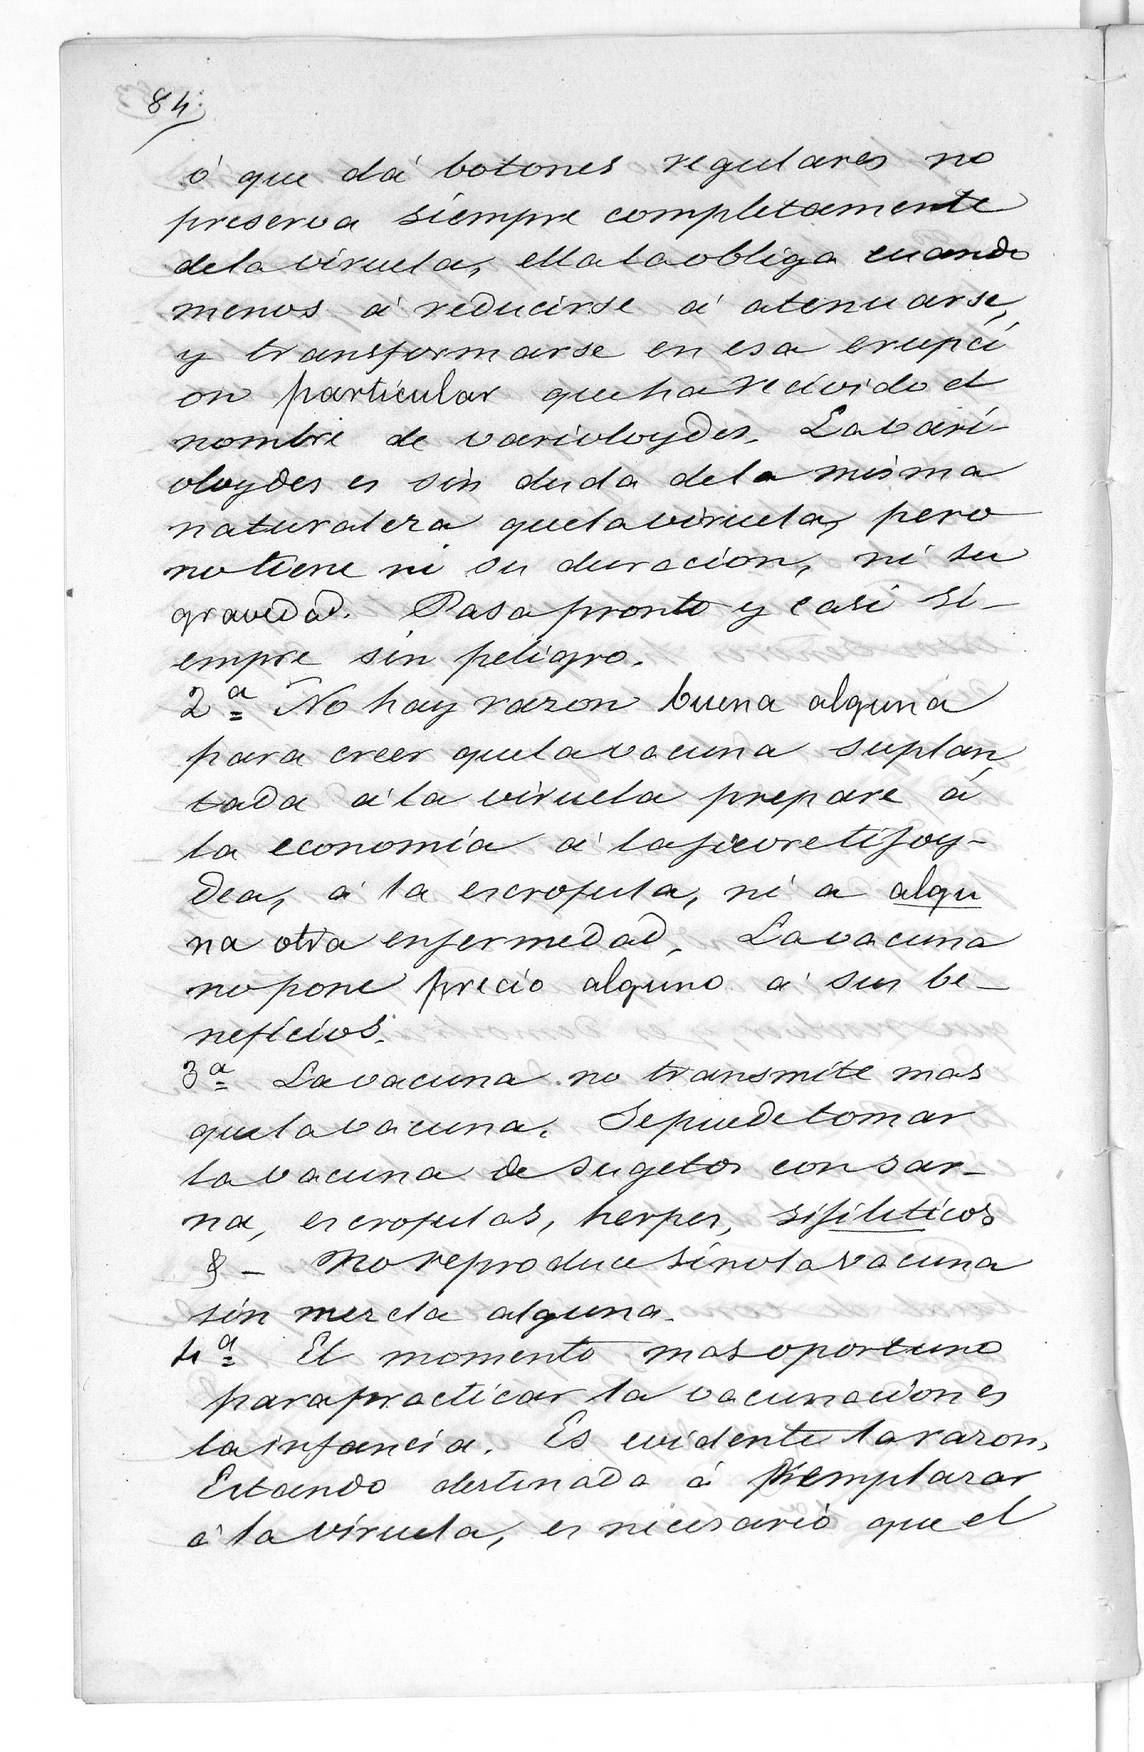 84.
ó que dá botones regulares no
preserva siempre completamente
de la viruela, ella la obliga cuando
menos á reducirse á atenuarse,
y transformarse en esa erupci
on particular que ha recivido el
nombre de varioloydes. La vari-
oloydes es sin duda de la misma
naturaleza que la viruela, pero
no tiene ni su duracion, ni su
gravedad. Pasa pronto y casi si-
empre sin peligro.
2ª No hay razon buena alguna
para creer que la vacuna suplan
tada á la viruela prepare á
la economía á la fievre tifoy-
dea, á la escrofula, ni a algu
na otra enfermedad. La vacuna
no pone precio alguno á sus be-
neficios.
3ª La vacuna no transmite mas
que la vacuna. Se puede tomar
la vacuna de sugetos con sar-
na, escrofulas, herpes, sifiliticos
& - No reproduce sino la vacuna
sin mezcla alguna.
4ª El momento mas oportuno
para practicar la vacunacion es
la infancia. Es evidente la razon,
Estando destinada á remplazar
á la viruela, es necesario que el